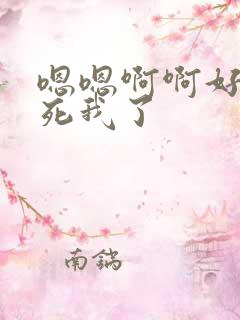 嗯嗯啊啊好
死我了
南鍋